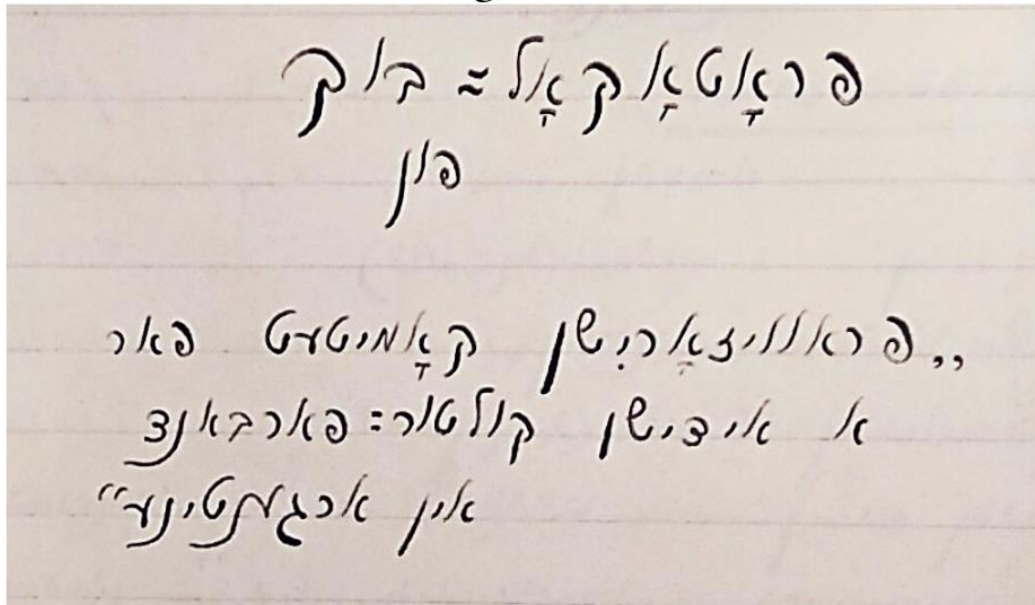 פּראָטאָקאָל=בוק
פון
„פּראװיזאָרישן קאָמיטעט פאר
א אידישן קולטור=פארבאנד
אין ארגענטינע“